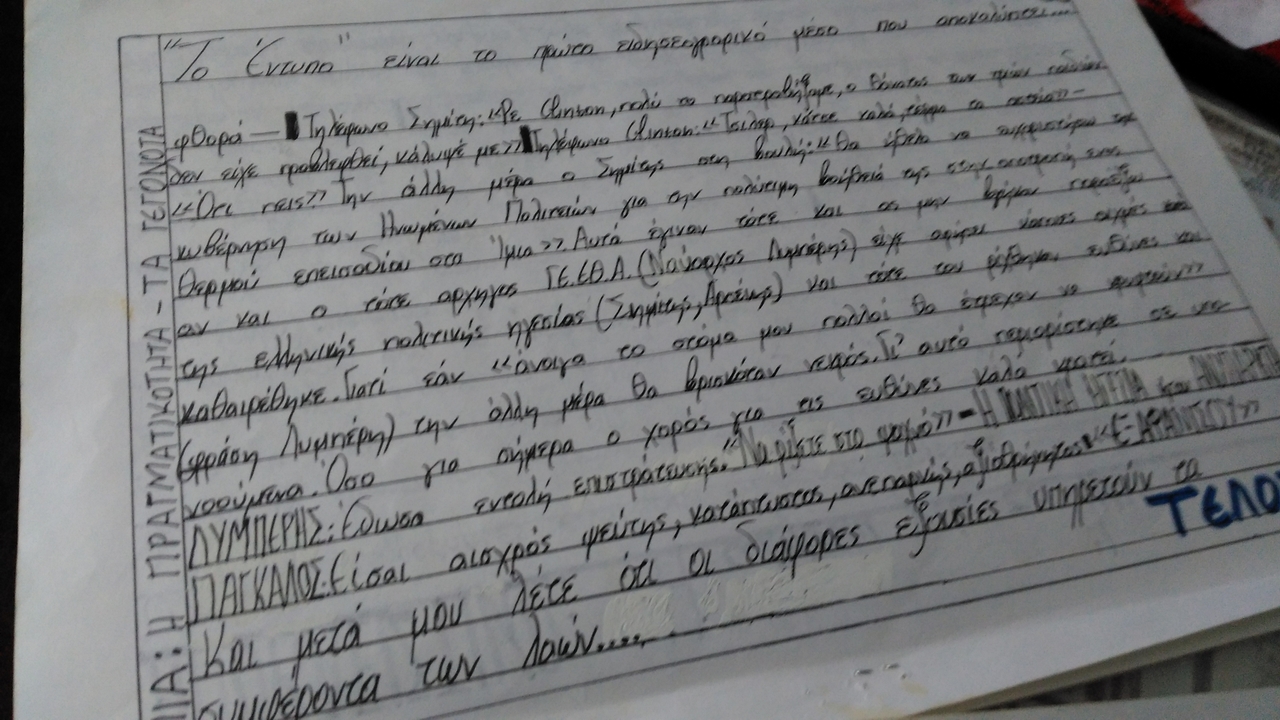 "Το Έντυπο" είναι το πρώτο ειδησεογραφικό μέσο που αποκαλύπτει...
φθορά — Τηλέφωνο Σημίτη: «Ρε Clinton, πολύ το παρατραβήξαμε, ο θάνατος των τριών παιδιών
δεν είχε προβλεφθεί, κάλυψέ με>> Τηλέφωνο Clinton: «Τσιλέρ, κάτσε καλά, τέρμα τα αστεία»-
«Ότι πεις>> Την άλλη μέρα ο Σημίτης στη βουλή: «Θα ήθελα να ευχαριστήσω την
κυβέρνηση των Ηνωμένων Πολιτειών για την πολύτιμη βοήθειά της στην αποτροπή ενός
θερμού επεισοδίου στα Ίμια>> Αυτά έγιναν τότε και ας μην βρήκαν
αν και ο τότε αρχηγός ΓΕ.ΕΘ.Α. (Ναύαρχος Λυμπέρης) είχε αφήσει κάποιες αιχμές
της ελληνικής πολιτικής ηγεσίας (Σημίτης, Αρσένης) και τότε του ευθύνες και
καθαιρέθηκε. Γιατί εάν «άνοιγα το στόμα μου πολλοί θα έπρεπε να
(φράση Λυμπέρη) την άλλη μέρα θα βρισκόταν νεκρός. Γι' αυτό περιορίστηκε σε υπο-
νοούμενα. Όσο για σήμερα ο χορός για τις ευθύνες καλά κρατεί.
ΛΥΜΠΕΡΗΣ: Έδωσα εντολή επιστράτευσης. "Να ρίξετε στο ψαχνό>> - Η ΗΓΕΣΙΑ
ΠΑΓΚΑΛΟΣ: Είσαι αισχρός ψεύτης, κατάπτυστος, ανεπαρκής, αξιοθρήνητος "«Ε-ΑΡΑΝΙΤΟΥ»
Και μετά μου λέτε ότι οι διάφορες εξουσίες υπηρετούν τα
συμφέροντα των λαών.....
ΤΕΛΟ
ΜΙΑ: Η ΠΡΑΓΜΑΤΙΚΟΤΗΤΑ - ΤΑ ΓΕΓΟΝΟΤΑ